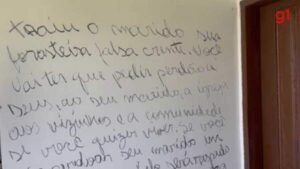 traiu o marido sua
forasteira falsa crente. Você
vai ter que pedir perdão a
Deus, ao seu marido, a igreja
aos vizinhos e a comunidade
se você quizer viver. Se você
seu marido
g1